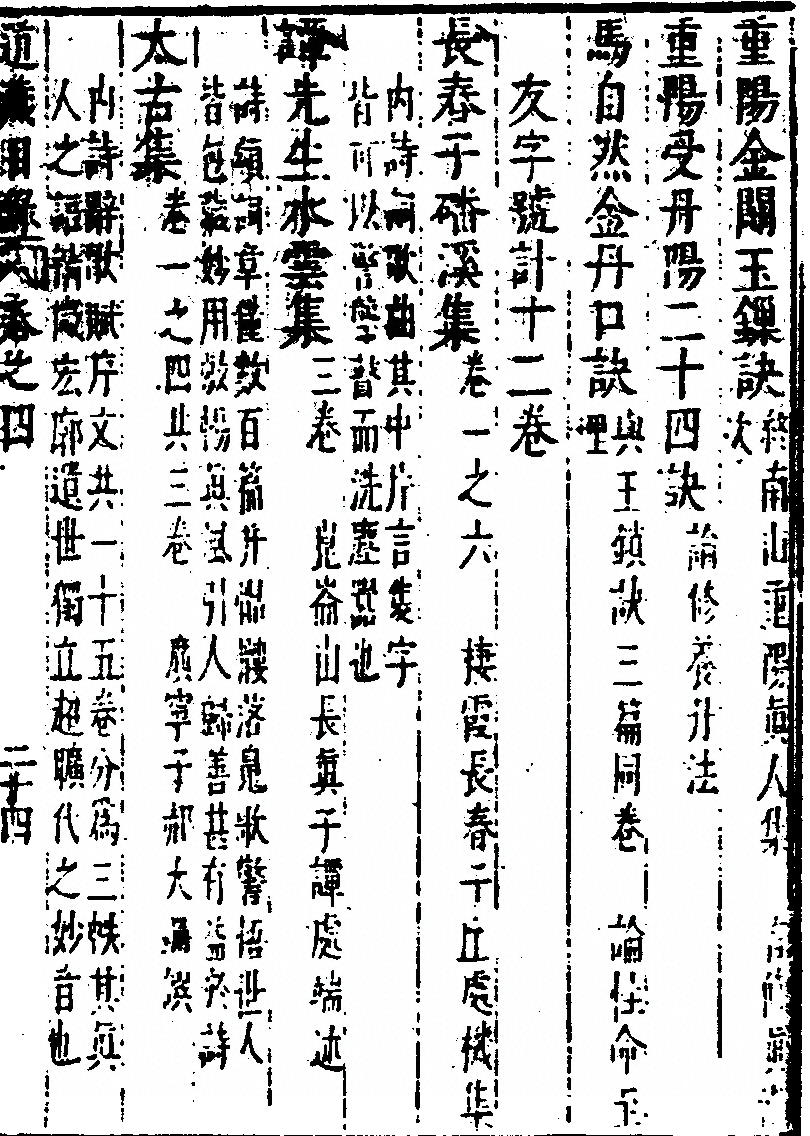 重陽金關玉鏁訣 終南山重陽眞人集 言修眞
次
重陽受丹陽二十四訣 論修養升法
馬自然金丹口訣 與玉鎖訣三篇同卷 論性命正
理
友字號計十二卷
長春子磻溪集 卷一之六 棲霞長春子丘處機集
內詩詞歌曲其中片言隻字
皆可以警聾瞽而洗塵囂也
譚先生水雲集 三卷 崑崙山長眞子譚處端述
詩頌詞章僅數百篇并骷髏落魄歌警悟世人
皆包藏妙用敷揚眞風引人歸善甚有益於詩
太古集 卷一之四共三卷 廣寧子郝大通譔
內詩辭歌賦序文共一十五卷分爲三帙其眞
人之語精微宏廓遺世獨立超曠代之妙音也
道藏目錄 卷之四 二十四